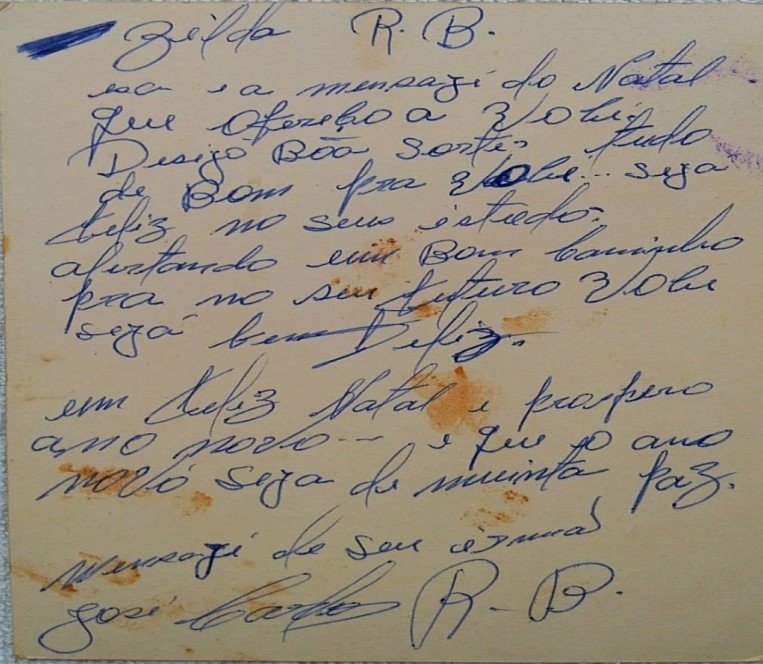 Zilda R. B.
esa e a mensagi do Natal
que ofereho a Vohe.
Desejo Bôa sorte. tudo
de Bom pra Vohe... seja
feliz no seu istudo.
asertando em Bom Caminho
pra no seu futuro Vohe
seja bem Feliz.
em Feliz Natal e prospero
ano novo -- e que o ano
novo seja de muinta paz.
Mensagi de seu irmao
José Carlos R-B.